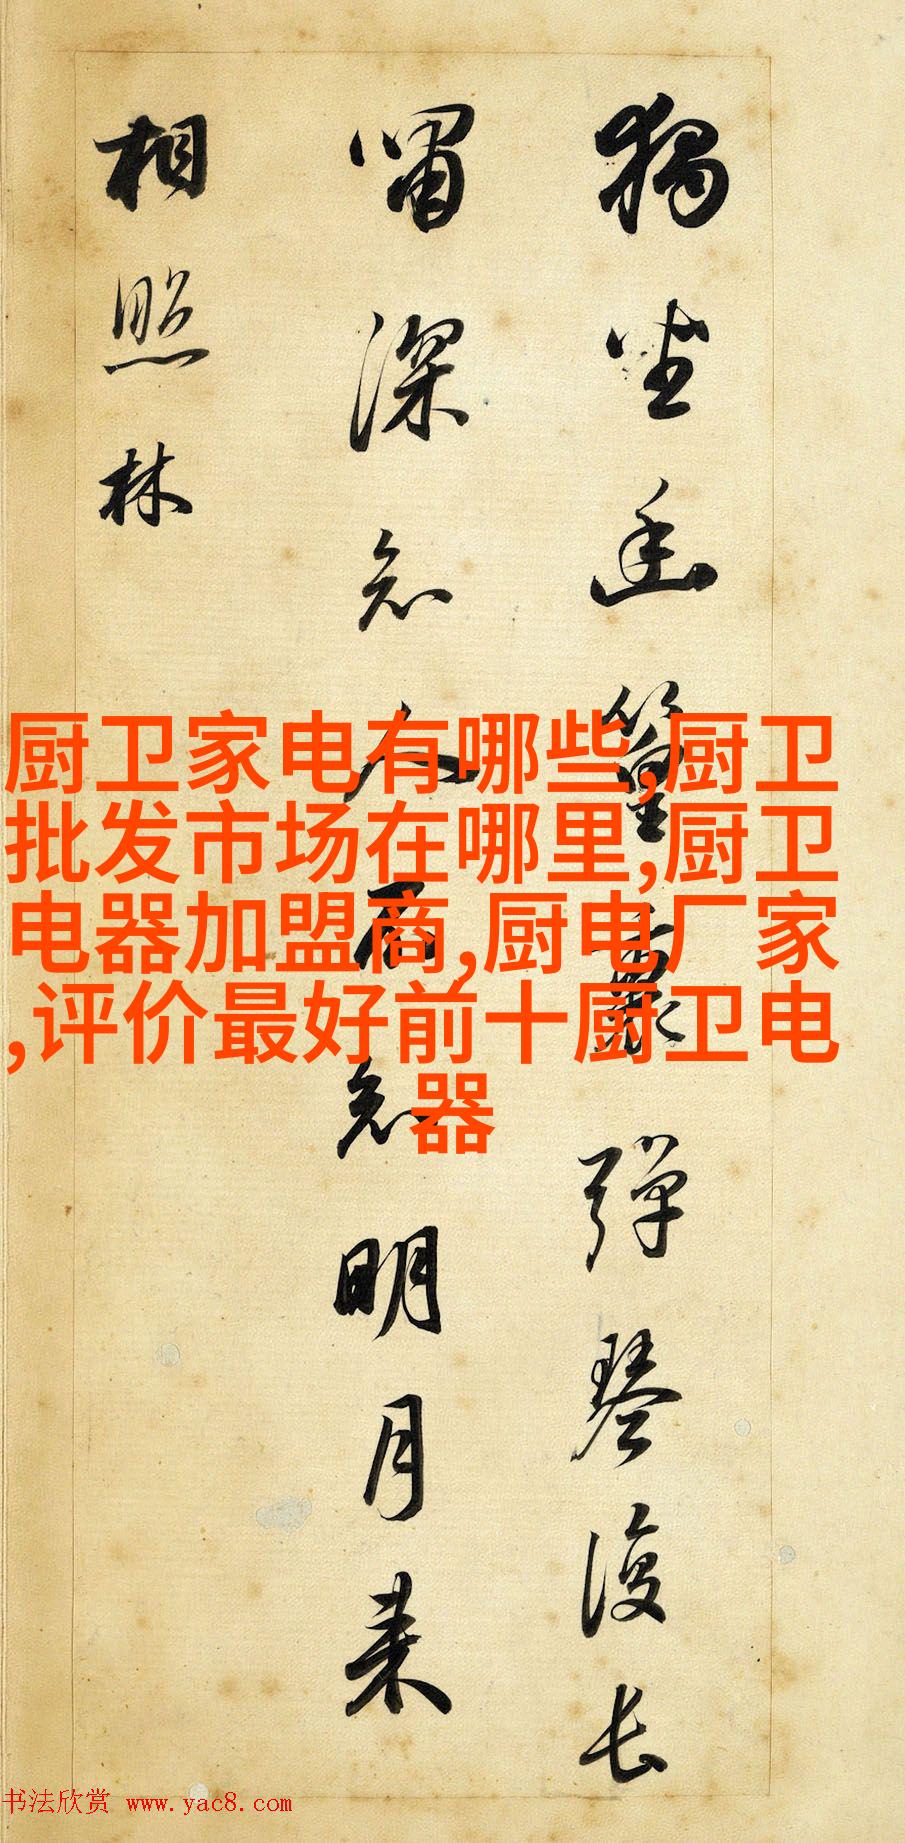 獨坐幽篁裏彈琴復長
嘯深知人不知明月来
相照林
厨卫家电有哪些,厨卫
批发市场在哪里,厨卫
电器加盟商,厨电厂家
,评价最好前十厨卫电
器
书法欣赏 www.yac8.com